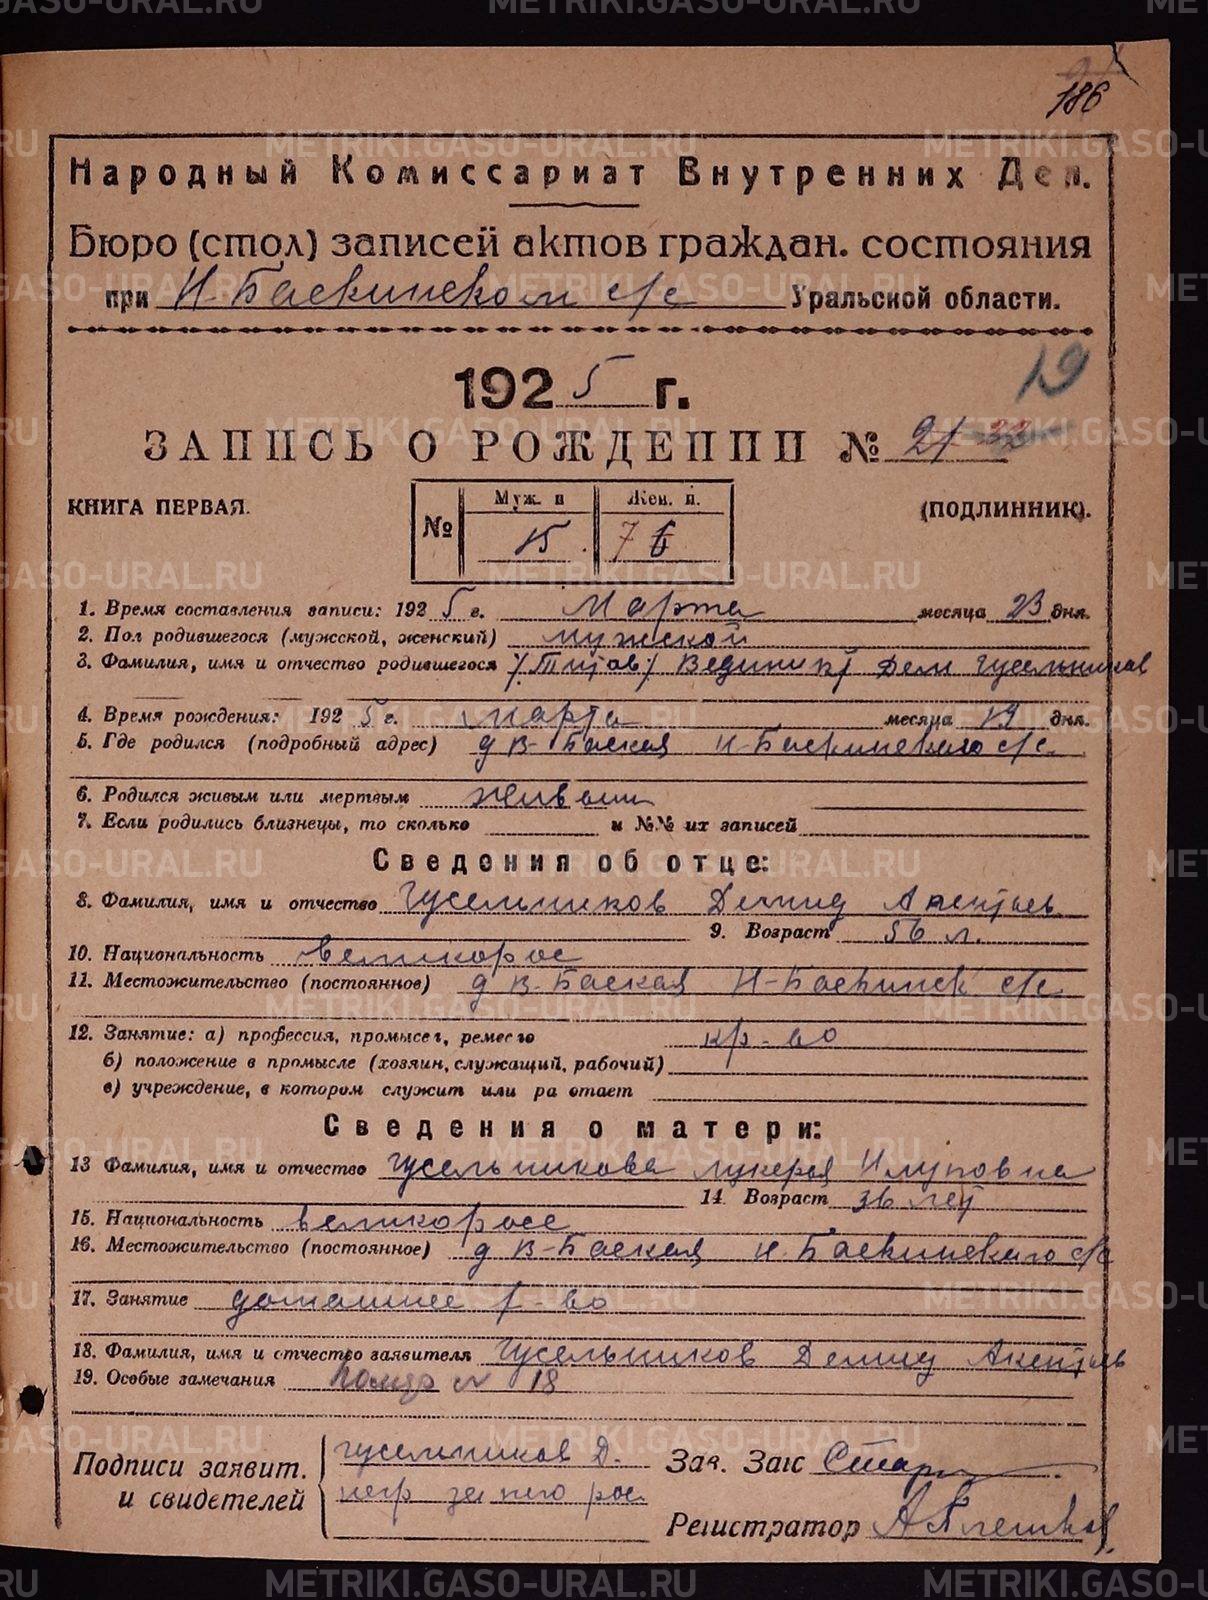 186
Народный Комиссариат Внутренних Дел.
Бюро (стол) записей актов граждан. состояния
при Н-Баскинском с/с Уральской области.
19
1925 г.
ЗАПИСЬ О РОЖДЕНИИ № 21 33
КНИГА ПЕРВАЯ.
(ПОДЛИННИК).
№ Муж. п Жен. п.
15 7 6
1. Время составления записи: 1925 г. Марта месяца 23 дня.
2. Пол родившегося (мужской, женский) мужской
3. Фамилия, имя и отчество родившегося Дем Гусельников
4. Время рождения: 1925 г. марта месяца 19 дня.
5. Где родился (подробный адрес) д В-Баская Н-Баскинского с/с.
6. Родился живым или мертвым живым
7. Если родились близнецы, то сколько и №№ их записей
Сведения об отце:
8. Фамилия, имя и отчество Гусельников Демид Акентьев
9. Возраст 56 л.
10. Национальность великорос
11. Местожительство (постоянное) д В-Баская Н-Баскинск с/с.
12. Занятие: а) профессия, промысел, ремесло кр-во
б) положение в промысле (хозяин, служащий, рабочий)
в) учреждение, в котором служит или ра отает
Сведения о матери:
13 Фамилия, имя и отчество Гусельникова лукерья
14. Возраст 36 лет
15. Национальность великоросс
16. Местожительство (постоянное) д В-Баская Н-Баскинского с/с
17. Занятие домашнее х-во
18. Фамилия, имя и отчество заявителя Гусельников Демид Акентьев
19. Особые замечания 18
Подписи заявит.
и свидетелей
гусельников Д.
негр за него рос
Зав. Загс
Регистратор
METRIKI.GASO-URAL.RU